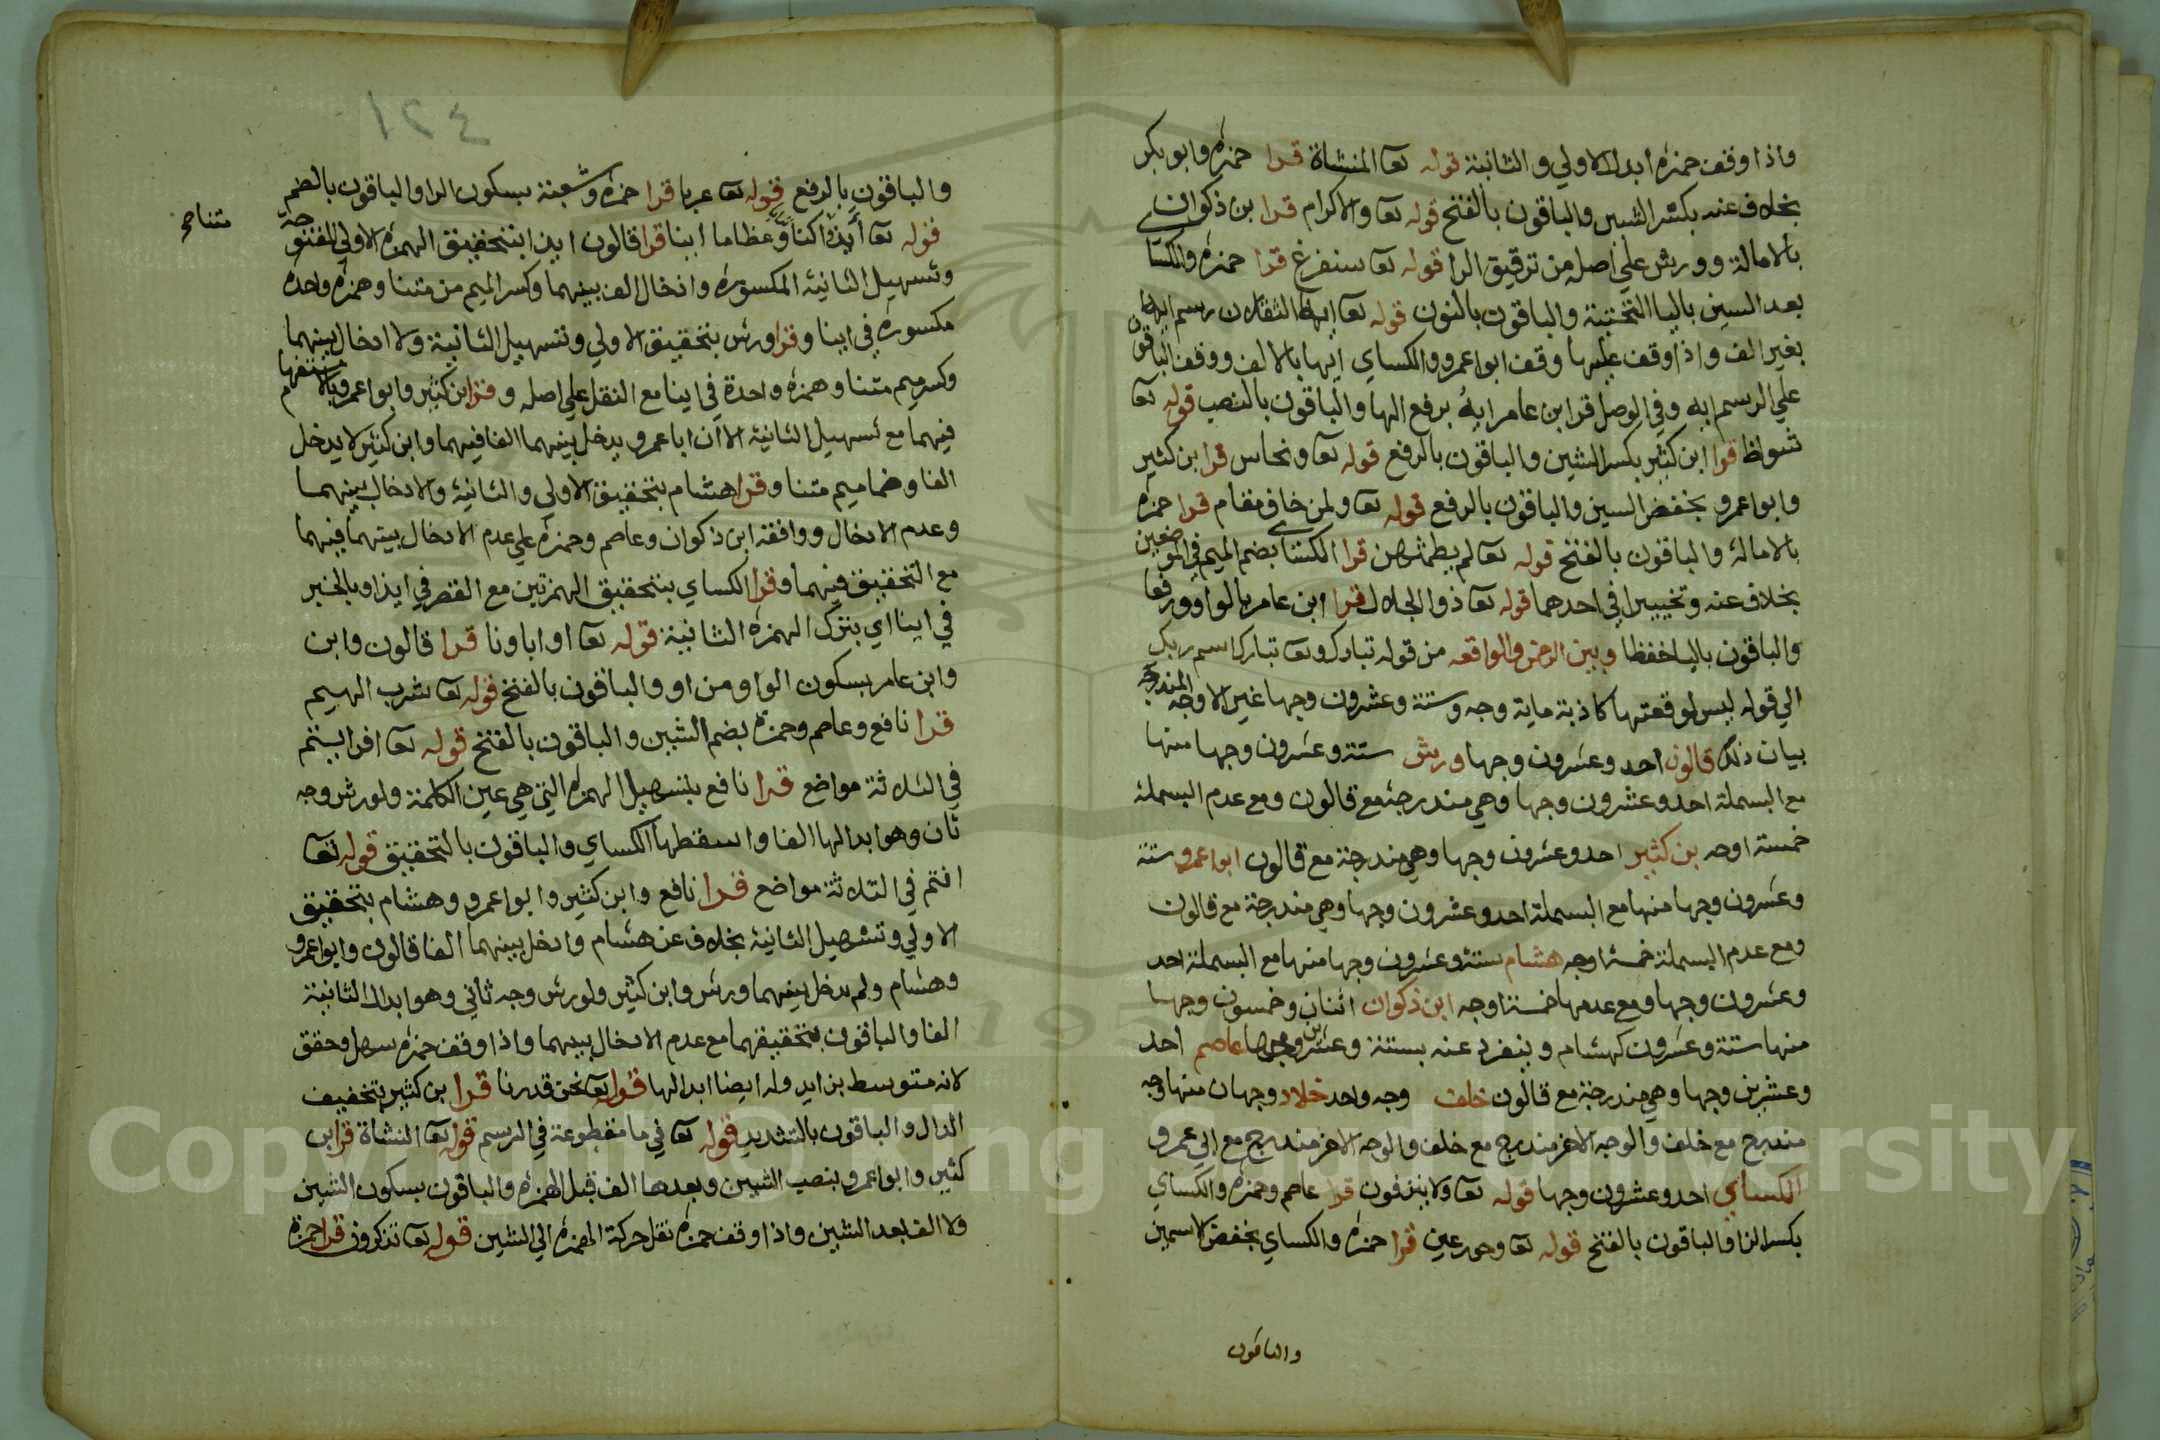 واذا وقف حمزه ابدل الاولي والثانية قوله تعا المنشاة قرا حمزه وابو بكر
بخلاف عنه بكسر الشين والباقون بالفتح قوله تعا والاكرام قرا بن ذكوان
بالامالة وورش علي اصله من ترقيق الرا قوله تعا سنفرغ قرا حمزه والكساي
بعد السين باليا التحتية والباقون بالنون قوله تعا ايها الثقلان رسم ايها
بغير الف واذا وقف عليها وقف ابو عمرو والكساي ايها بالالف ووقف الباقون
علي الرسم ايه وفي الوصل قرا ابن عامر ايهُ برفع الها والباقون بالنصب قوله تعا
شواظ قرا ابن كثير بكسر الشين والباقون بالرفع قوله تعا ونحاس قرا بن كثير
وابو عمرو بخفض السين والباقون بالرفع قوله تعا ولمن خاف مقام قرا حمزه
بالاماله والباقون بالفتح قوله تعا لم يطمثهن قرا الكساي بضم الميم في الموضعين
بخلاف عنه وتخييرا في احدهما قوله تعا ذو الجلال قرا ابن عامر بالواو ورفعا
والباقون باليا خفظا وبين الرحمن والواقعه من قوله تبارك وتعا تبارك اسم ربك
الي قوله ليس لوقعتها كاذبة ماية وجه وستة وعشرون وجها غير الاوجه المندرجه
بيان ذلك قالون احد وعشرون وجها ورش ستة وعشرون وجها منها
مع البسملة احد وعشرون وجها وهي مندرجة مع قالون ومع عدم البسملة
خمسة اوجه بن كثير احد وعشرون وجها وهي مندرجة مع قالون ابو عمرو ستة
وعشرون وجها منها مع البسملة احد وعشرون وجها وهي مندرجة مع قالون
ومع عدم البسملة خمسة اوجه هشام ستة وعشرون وجها منها مع البسملة احد
وعشرون وجها ومع عدمها خمسة اوجه ابن ذكوان اثنان وخمسون وجها
منها ستة وعشرون كهشام وينفرد عنه بستة وعشرين وجها عاصم احد
وعشرين وجها وهي مندرجة مع قالون خلف وجه واحد خلاد وجهان منها وجه
مندرج مع خلف والوجه الاخر مندرج مع خلف والوجه الاخر مندرج مع ابي عمرو
الكساي احد وعشرون وجها قوله تعا ولا ينزفون قرا عاصم وحمزه والكساي
بكسر الزا والباقون بالفتح قوله تعا وحور عين قرا حمزه والكساي بخفض الاسمين
والباقون
١٢٤
والباقون بالرفع قوله تعا عربا قرا حمزه وشعبة بسكون الرا والباقون بالضم
قوله تعا أيذا كنا وعظاما اينا قرا قالون ايذا بتحقيق الهمزه الاولي المفتوحة
وتسهيل الثانية المكسوره وادخال الف بينهما وكسر الميم من متنا وهمزه واحدة
مكسوره في اينا وقرا ورش بتحقيق الاولي وتسهيل الثانية ولا ادخال بينهما
وكسر ميم متنا وهمزه واحدة في اينا مع النقل علي اصله وقرا ابن كثير وابو عمرو بالاستفهام
فيهما مع تسهيل الثانية الا ان ابا عمرو يدخل بينهما الفا فيهما وابن كثير لا يدخل
الفا وضما ميم متنا وقرا هشام بتحقيق الاولي والثانية والادخال بينهما
وعدم الادخال ووافقه ابن ذكوان وعاصم وحمزه علي عدم الادخال بينهما فيهما
مع التحقيق فيهما وقرا الكساي بتحقيق الهمزتين مع القصر في ايذا وبالخبر
في اينا اي بترك الهمزه الثانية قوله تعا او اباونا قرا قالون وابن
وابن عامر بسكون الواو من او والباقون بالفتح قوله تعا شرب الهيم
قرا نافع وعاصم وحمزه بضم الشين والباقون بالفتح قوله تعا افرايتم
في الثلاثة مواضع قرا نافع بتسهيل الهمزه التي هي عين الكلمة ولورش وجه
ثان وهو ابدالها الفا واسقطها الكساي والباقون بالتحقيق قوله تعا
انتم في الثلاثة مواضع قرا نافع وابن كثير وابو عمرو وهشام بتحقيق
الاولي وتسهيل الثانية بخلاف عن هشام وادخل بينهما الفا قالون وابو عمرو
وهشام ولم يدخل بينهما ورش وابن كثير ولورش وجه ثاني وهو ابدال الثانية
الفا والباقون بتحقيقهما مع عدم الادخال بينهما واذا وقف حمزه سهل وحقق
لانه متوسط بزايد وله ايضا ابدالها قوله تعا نحن قدرنا قرا بن كثير بتخفيف
الدال والباقون بالتشديد قوله تعا في ما مقطوعة في الرسم قوله تعا النشاة قرا ابن
كثير وابو عمرو بنصب الشين وبعدها الف قبل الهمزه والباقون بسكون الشين
ولا الف بعد الشين واذا وقف حمزه نقل حركة الهمزه الي الشين قوله تعا تذكرون قرا حمزة
Copyright © King Saud University
1957